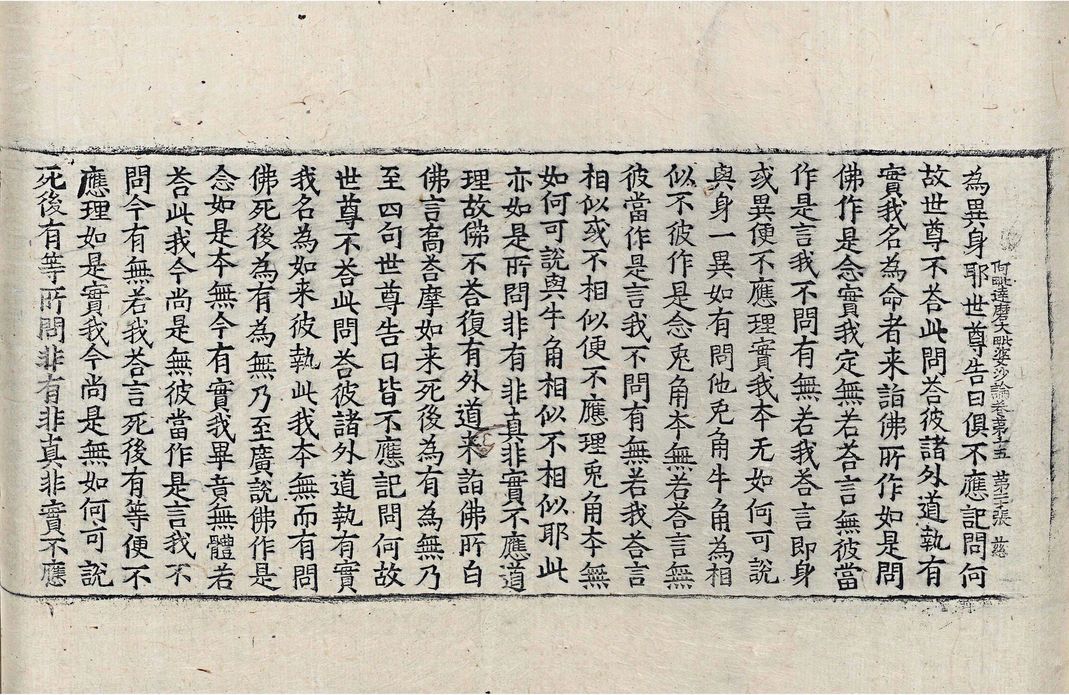 阿毗達磨大毗婆沙論卷第十五 第二十張 慈
為異身耶世尊告曰俱不應記問何
故世尊不荅此問荅彼諸外道執有
實我名為命者来詣佛所作如是問
佛作是念實我定無若荅言無彼當
作是言我不問有無若我荅言即身
或異便不應理實我本无如何可說
與身一異如有問他兎角牛角為相
似不彼作是念兎角本無若荅言無
彼當作是言我不問有無若我荅言
相似或不相似便不應理兎角本無
如何可說與牛角相似不相似耶此
亦如是所問非有非真非實不應道
理故佛不荅復有外道来詣佛所白
佛言髙荅摩如来死後為有為無乃
至四句世尊告曰皆不應記問何故
世尊不荅此問荅彼諸外道執有實
我名為如来彼執此我本無而有問
佛死後為有為無乃至廣說佛作是
念如是本無今有實我畢竟無體若
荅此我今尚是無彼當作是言我不
問今有無若我荅言死後有等便不
應理如是實我今尚是無如何可說
死後有等所問非有非真非實不應